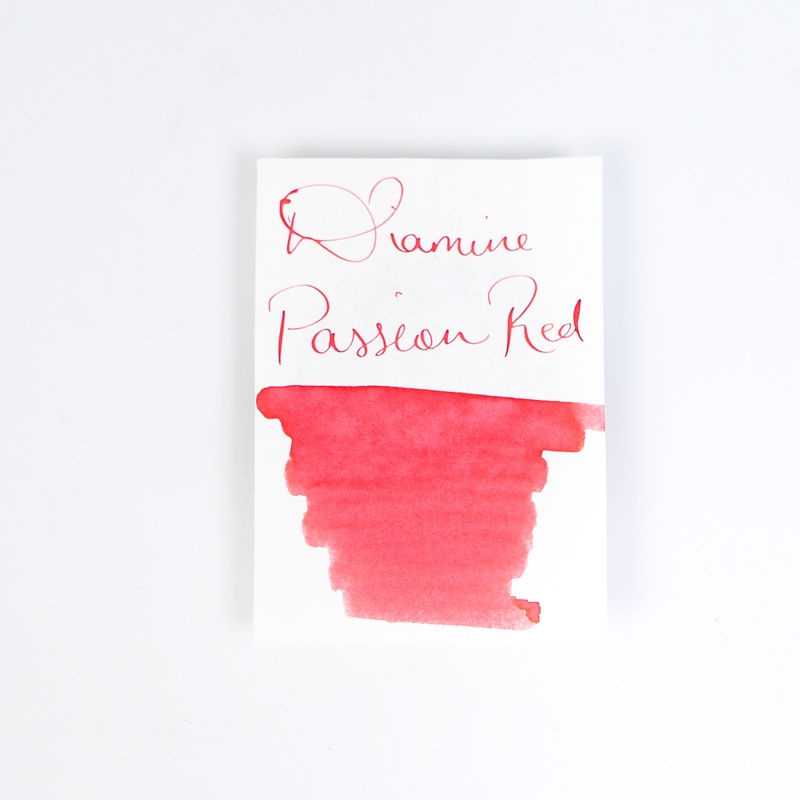 Diamine
Passion Red